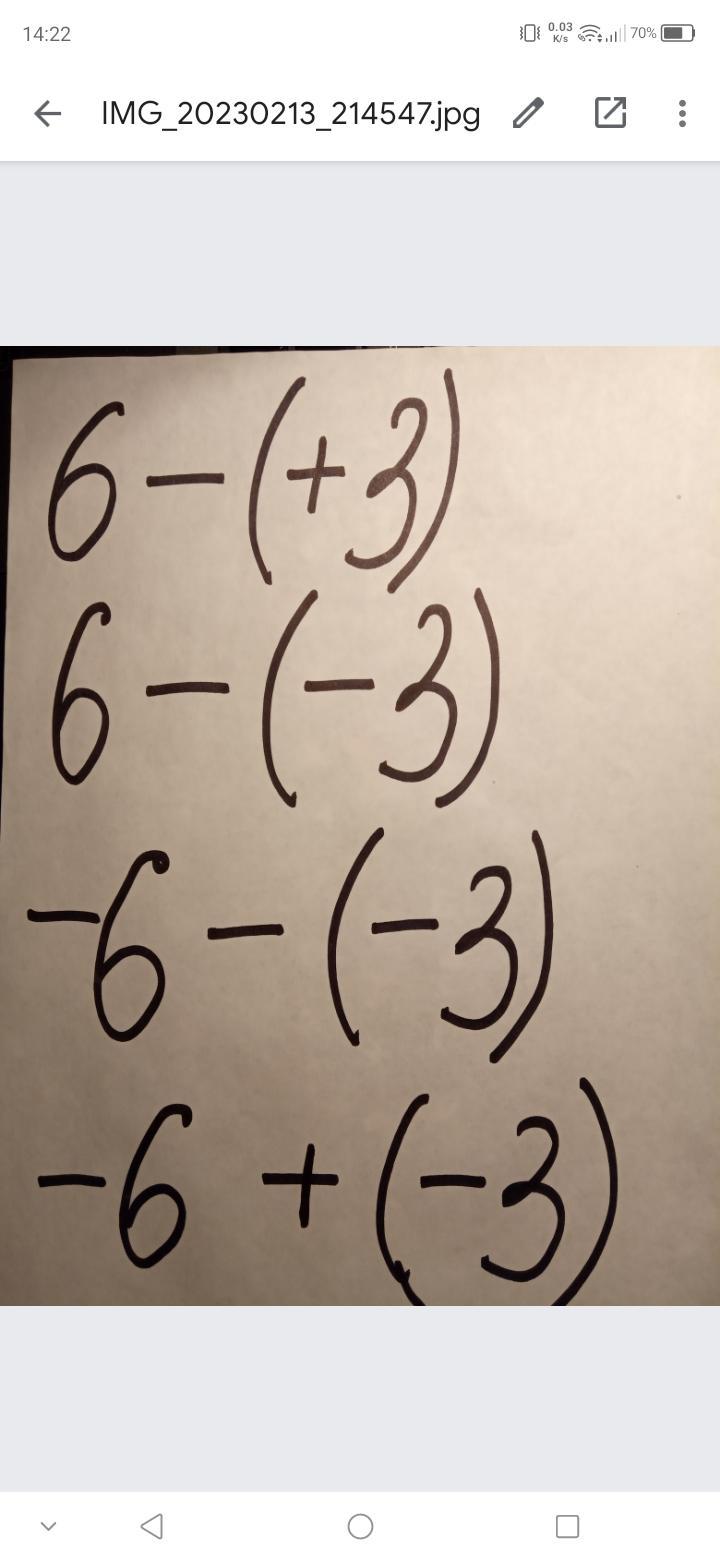 14:22 0.03 K/s 70%
IMG_20230213_214547.jpg
6-(+3)
6-(-3)
-6-(-3)
-6+(-3)